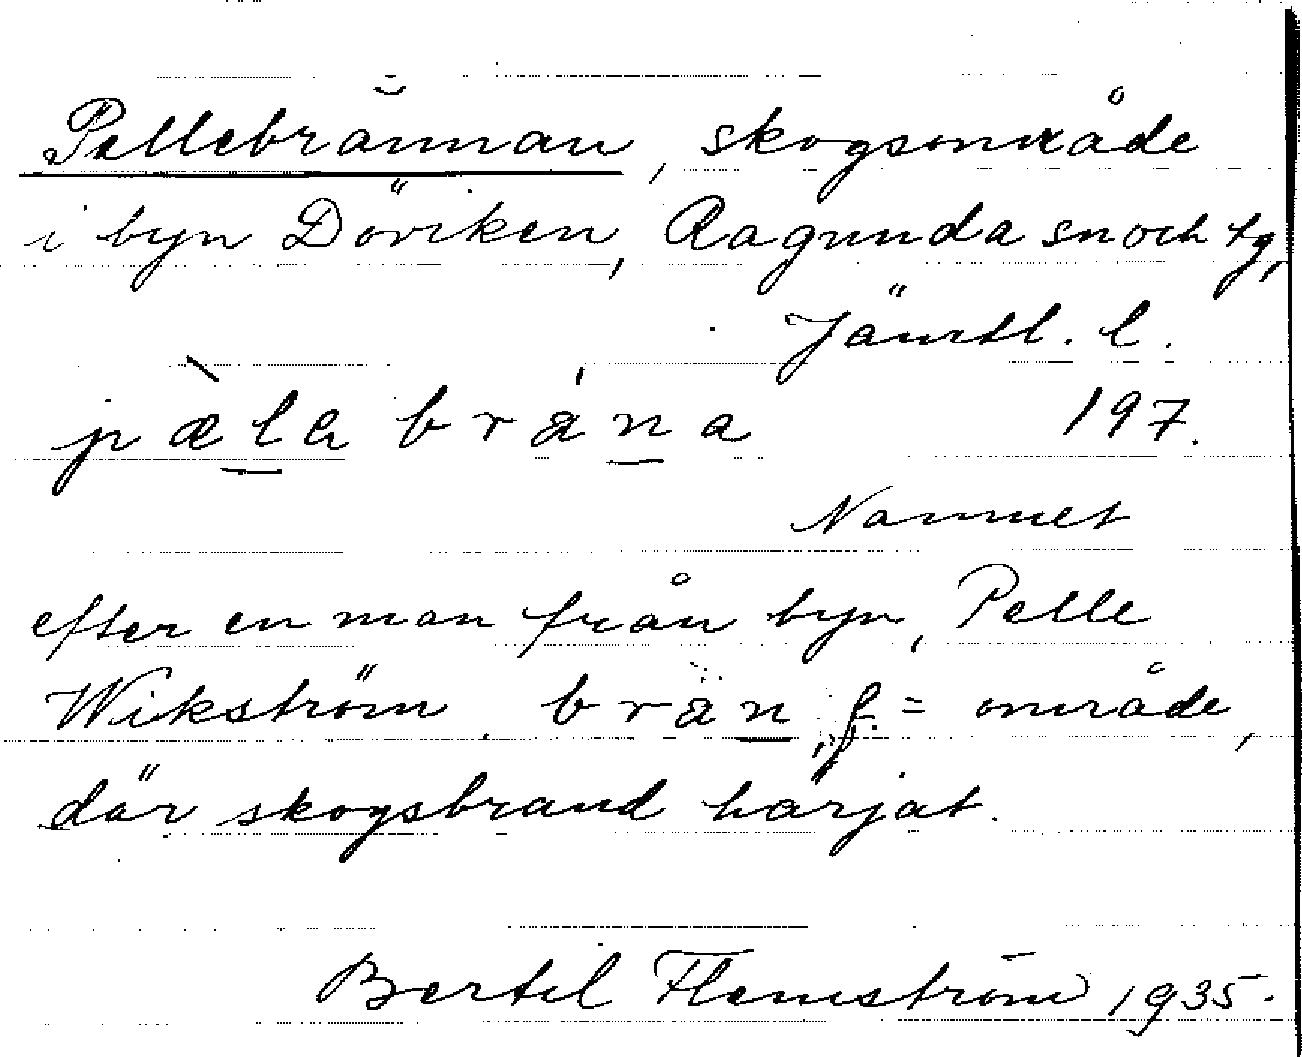 Pellebrännan, skogsområde
i byn Döviken, Ragunda sn och tg,
Jämtl. l.
pæ̀la brä́na 197.
Namnet
efter en man från byn, Pelle
Wikström. brän, f. = område,
där skogsbrand härjat.
Bertil Flemström 1935.